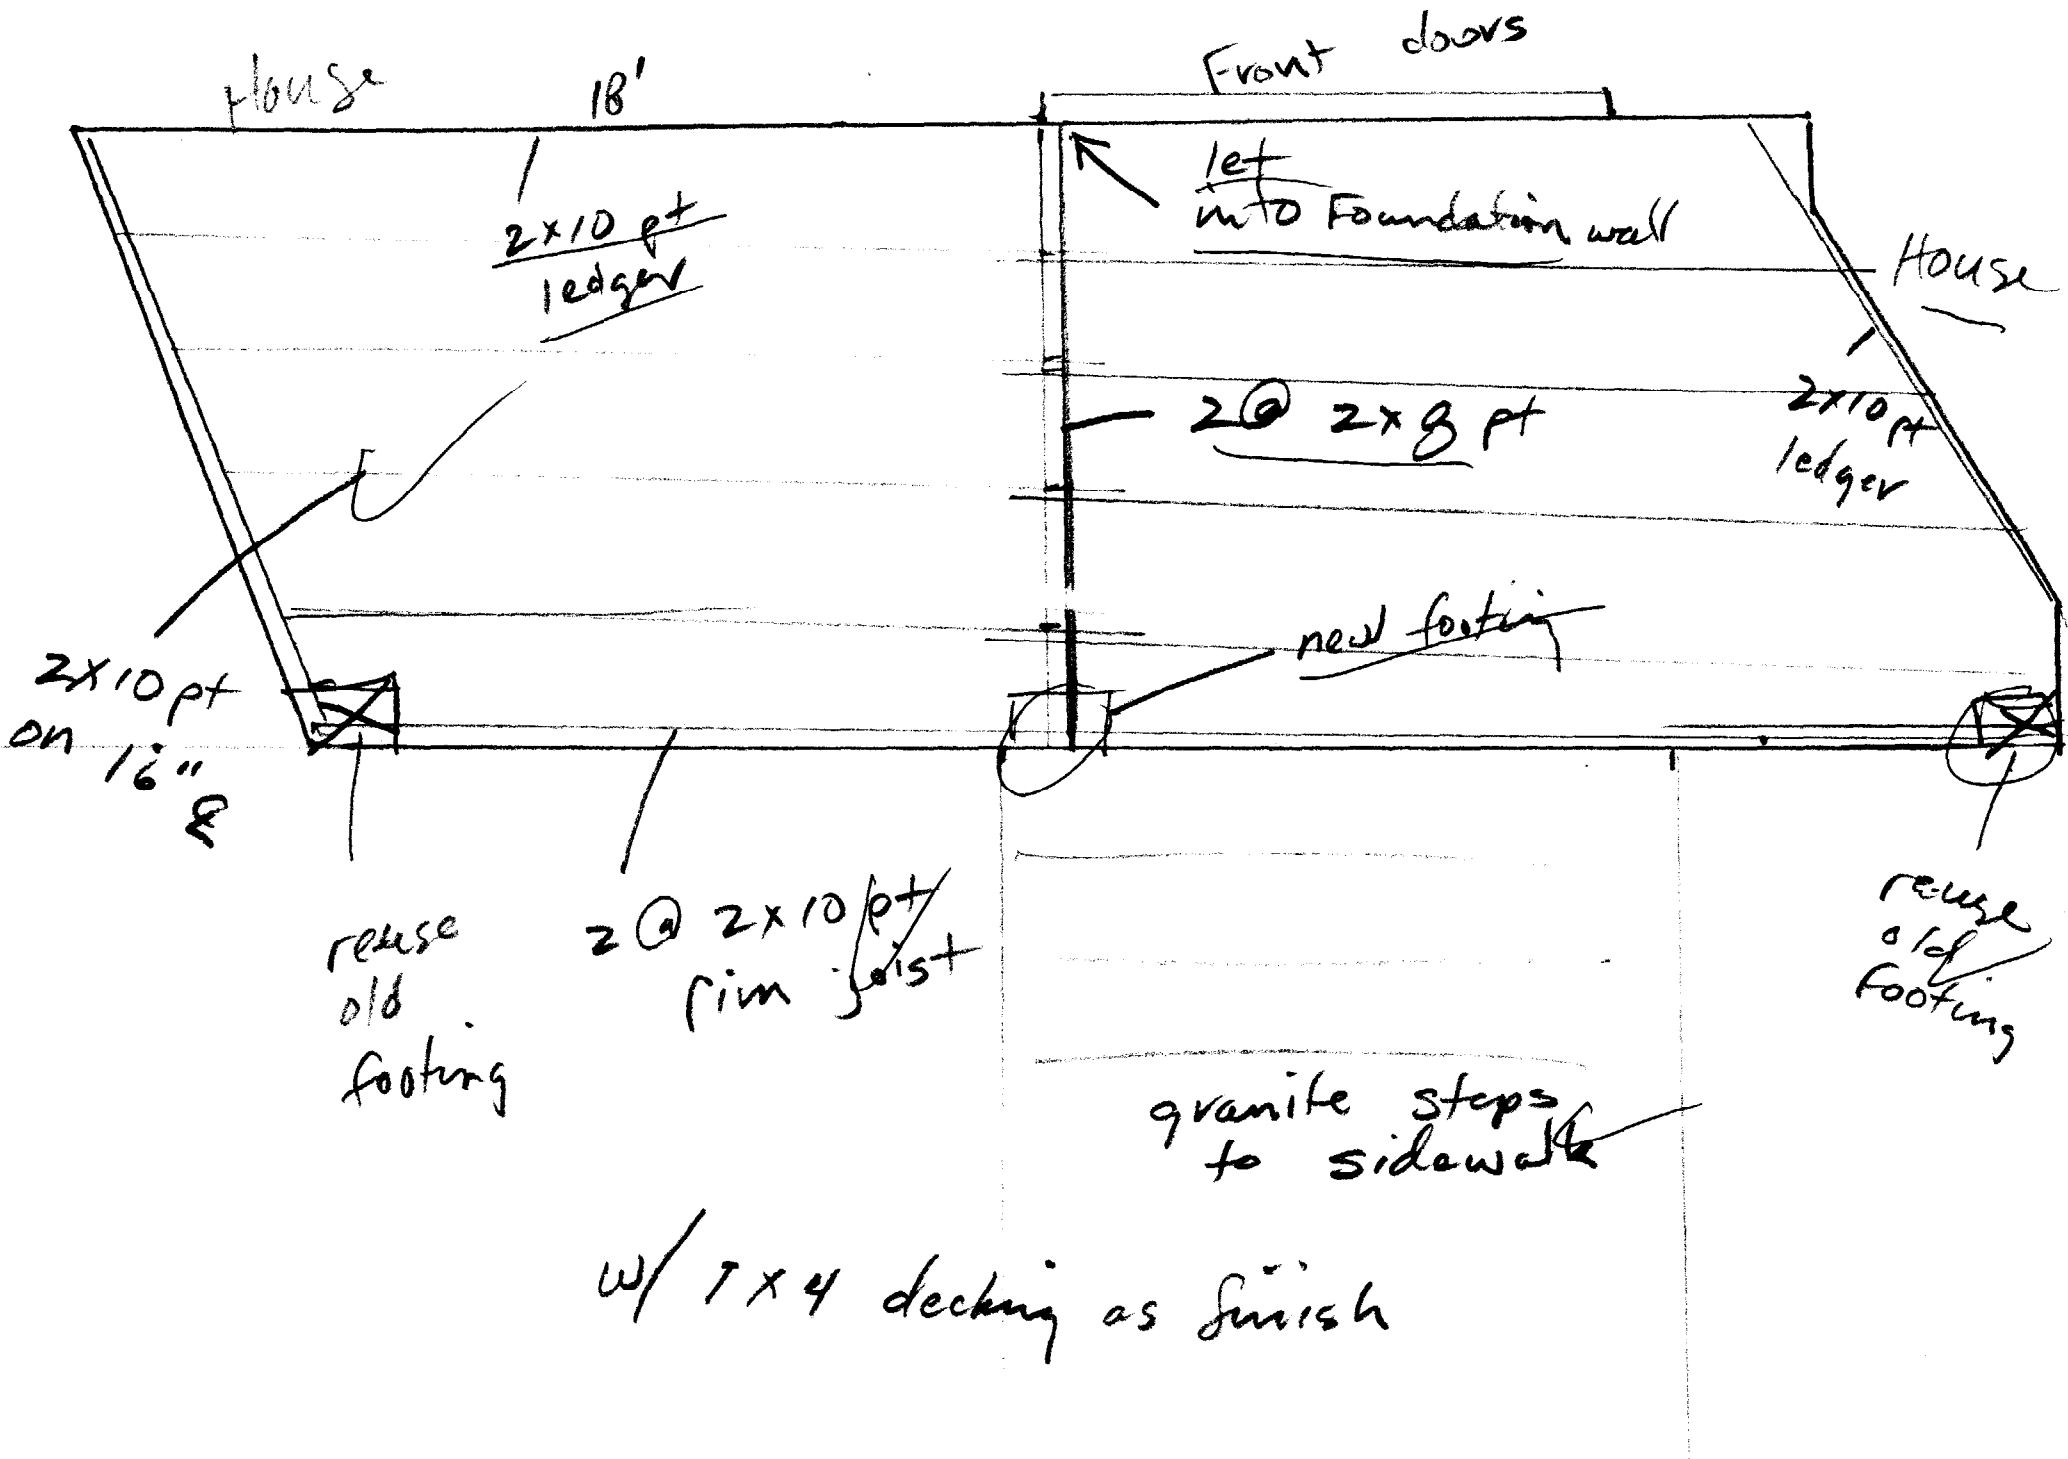 House
18'
Front doors
2x10 pt
ledger
let
into Foundation wall
House
2@ 2x8 pt
2x10 pt
ledger
new footing
2x10 pt
on 16"
reuse
old
footing
2 @ 2x10 pt
rim joist
reuse
old
Footing
granite steps
to sidewalk
w/ 1x4 decking as finish